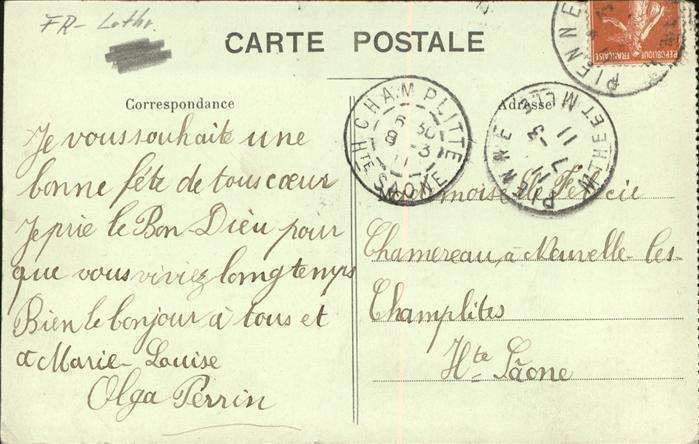 FR- Lothr
CARTE POSTALE
Correspondance
Je vous souhaite une
bonne fête de tous cœur
Je prie le Bon Dièu pour
que vous viviez longtemps
Bien le bonjour à tous et
à Marie-Louise
Olga Perrin
Adresse
Félicie
Chamereau, à Neuvelle-les-
Champlites
Hte Saône
CHAMPLITTE
6 30
8 -3
11
HTE SAONE
PIENNE
MTHE ET MLLE
7 -3
11
PIENNE
REPUBLIQUE FRANÇAISE